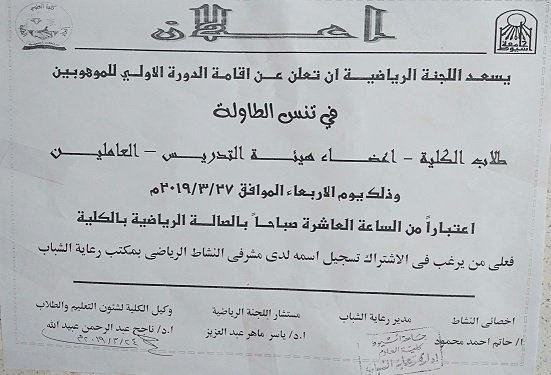 إعلان
جامعة أسيوط
كلية العلوم
يسعد اللجنة الرياضية ان تعلن عن اقامة الدورة الاولي للموهوبين
في تنس الطاولة
طلاب الكلية - اعضاء هيئة التدريس - العاملين
وذلك يوم الاربعاء الموافق ٢٠١٩/٣/٢٧م
اعتباراً من الساعة العاشرة صباحاً بالصالة الرياضية بالكلية
فعلى من يرغب فى الاشتراك تسجيل اسمه لدى مشرفى النشاط الرياضى بمكتب رعاية الشباب
اخصائى النشاط مدير رعاية الشباب مستشار اللجنة الرياضية وكيل الكلية لشئون التعليم والطلاب
ا/ حاتم احمد محمود ا.د/ ياسر ماهر عبد العزيز ا.د/ ناجح عبد الرحمن عبيد الله
جامعة أسيوط
كلية العلوم
إدارة رعاية الشباب
٢٠١٩/٣/٢٤م